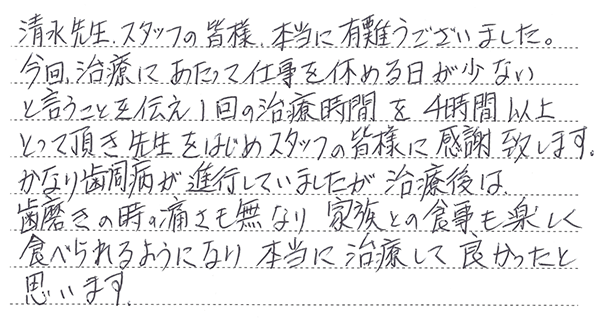 清水先生、スタッフの皆様、本当に有難うございました。
今回、治療にあたって仕事を休める日が少ない
と言うことを伝え1回の治療時間を4時間以上
とって頂き先生をはじめスタッフの皆様に感謝致します。
かなり歯周病が進行していましたが治療後は、
歯磨きの時の痛さも無なり家族との食事も楽しく
食べられるようになり本当に治療して良かったと
思います。